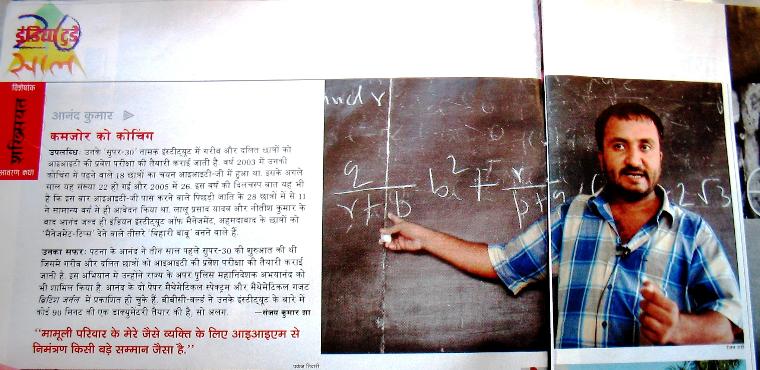 इंडिया टुडे
साल
विशेषांक
शख्सियत
आवरण कथा
आनंद कुमार
कमजोर को कोचिंग
उपलब्धि: उनके 'सुपर-30' नामक इंस्टीट्यूट में गरीब और दलित छात्रों को
आइआइटी की प्रवेश परीक्षा की तैयारी कराई जाती है. वर्ष 2003 में उनकी
कोचिंग में पढ़ने वाले 18 छात्रों का चयन आइआइटी-जी में हुआ था. इसके अगले
साल यह संख्या 22 हो गई और 2005 में 26. इस वर्ष की दिलचस्प बात यह भी
है कि इस बार आइआइटी-जी पास करने वाले पिछड़ी जाति के 28 छात्रों में से 11
ने सामान्य वर्ग में ही आवेदन किया था. लालू प्रसाद यादव और नीतीश कुमार के
बाद आनंद जल्द ही इंडियन इंस्टीट्यूट ऑफ मैनेजमेंट, अहमदाबाद के छात्रों को
'मैनेजमेंट-टिप्स' देने वाले तीसरे 'बिहारी बाबू' बनने वाले हैं.
उनका सफर: पटना के आनंद ने तीन साल पहले सुपर-30 की शुरुआत की थी
जिसमें गरीब और दलित छात्रों को आइआइटी की प्रवेश परीक्षा की तैयारी कराई
जाती है. इस अभियान में उन्होंने राज्य के अपर पुलिस महानिदेशक अभयानंद को
भी शामिल किया है. आनंद के दो पेपर मैथेमेटिकल स्पेक्ट्रम और मैथेमेटिकल गजट
ब्रिटिश जर्नल में प्रकाशित हो चुके हैं. बीबीसी-वर्ल्ड ने उनके इंस्टीट्यूट के बारे में
कोई 90 मिनट की एक डाक्युमेंटरी तैयार की है, सो अलग. —संजय कुमार झा
"मामूली परिवार के मेरे जैसे व्यक्ति के लिए आइआइएम से
निमंत्रण किसी बड़े सम्मान जैसा है."